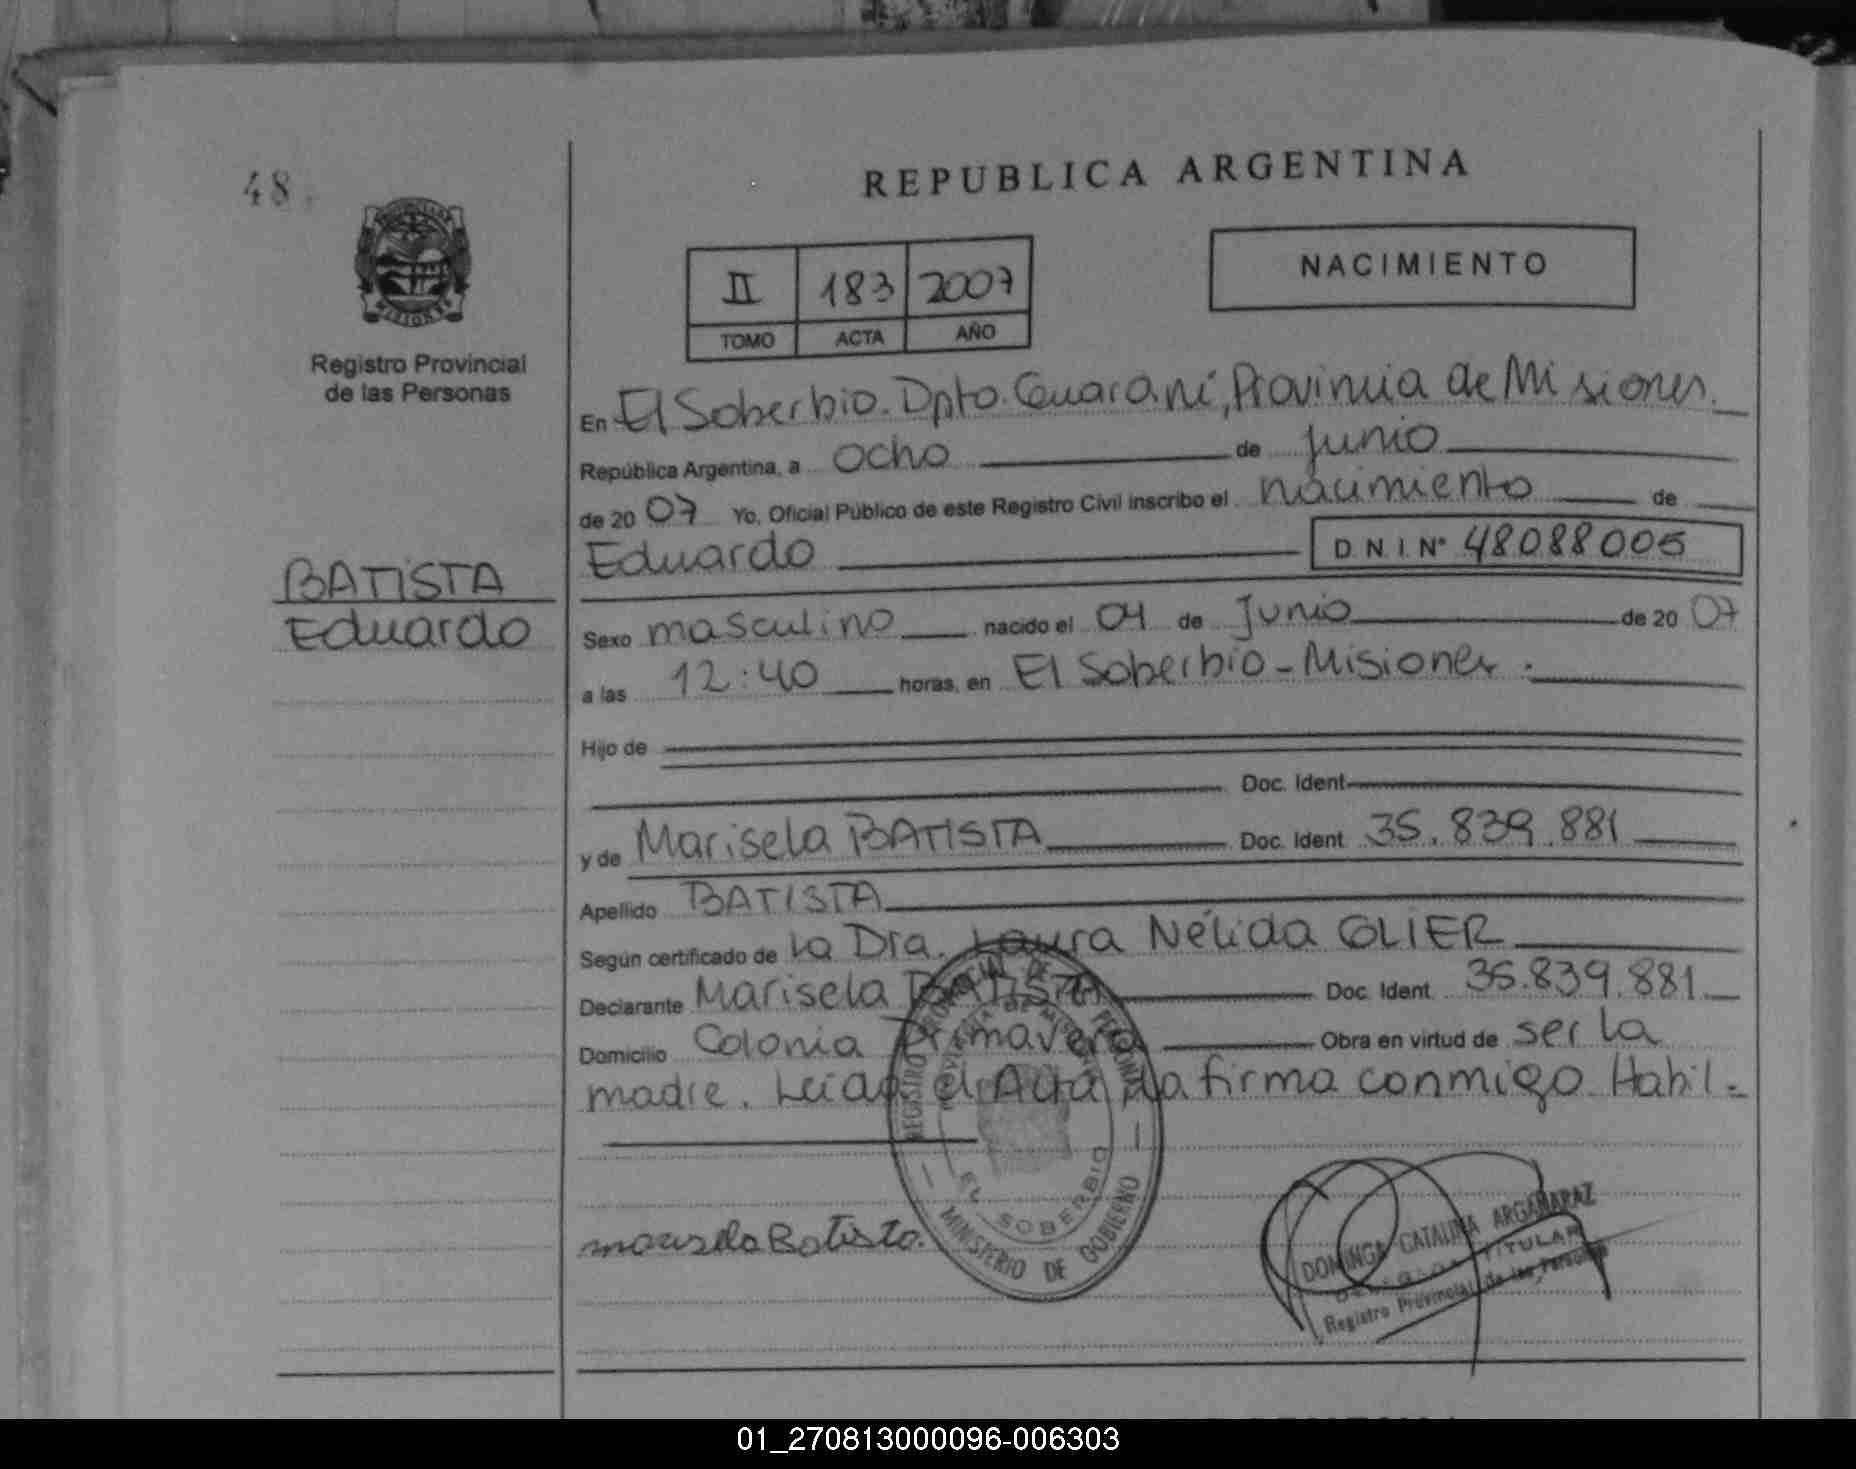 48.
PROVINCIA DE
MISIONES
Registro Provincial
de las Personas
BATISTA
Eduardo
REPUBLICA ARGENTINA
II 183 2007
TOMO ACTA AÑO
NACIMIENTO
En El Soberbio. Dpto. Guaraní, Provincia de Misiones.
República Argentina, a ocho de junio
de 2007 Yo, Oficial Público de este Registro Civil inscribo el nacimiento de
Eduardo D.N.I. Nº 48088005
Sexo masculino nacido el 04 de Junio de 2007
a las 12:40 horas, en El Soberbio - Misiones.
Hijo de
Doc. Ident
y de Marisela BATISTA Doc. Ident 35.839.881
Apellido BATISTA
Según certificado de la Dra. Laura Nélida GLIER
Declarante Marisela BATISTA Doc. Ident. 35.839.881
Domicilio Colonia Primavera Obra en virtud de ser la
madre. Leída el Acta la firma conmigo. Habil.-
REGISTRO PROVINCIAL DE LAS PERSONAS
PROVINCIA DE MISIONES
EL SOBERBIO
MINISTERIO DE GOBIERNO
marisela Batista.
DOMINGA CATALINA ARGAÑARAZ
DELEGADA TITULAR
Registro Provincial de las Personas
01_270813000096-006303